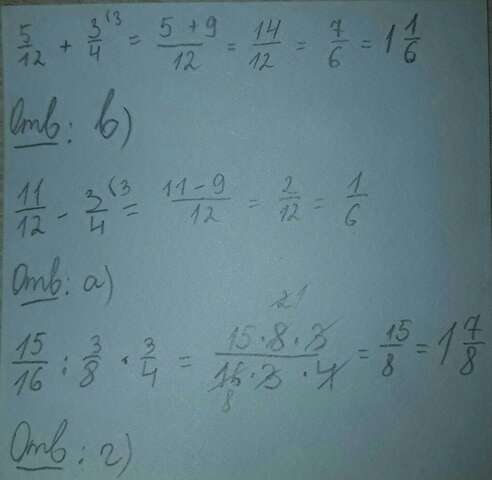 5/12 + 3/4 (3 = 5 + 9/12 = 14/12 = 7/6 = 1 1/6
Отв: в)
11/12 - 3/4 (3 = 11 - 9/12 = 2/12 = 1/6
Отв: а)
15/16 : 3/8 · 3/4 = 15 · 8 · 3/16 · 3 · 4 = 15/8 = 1 7/8
Отв: г)